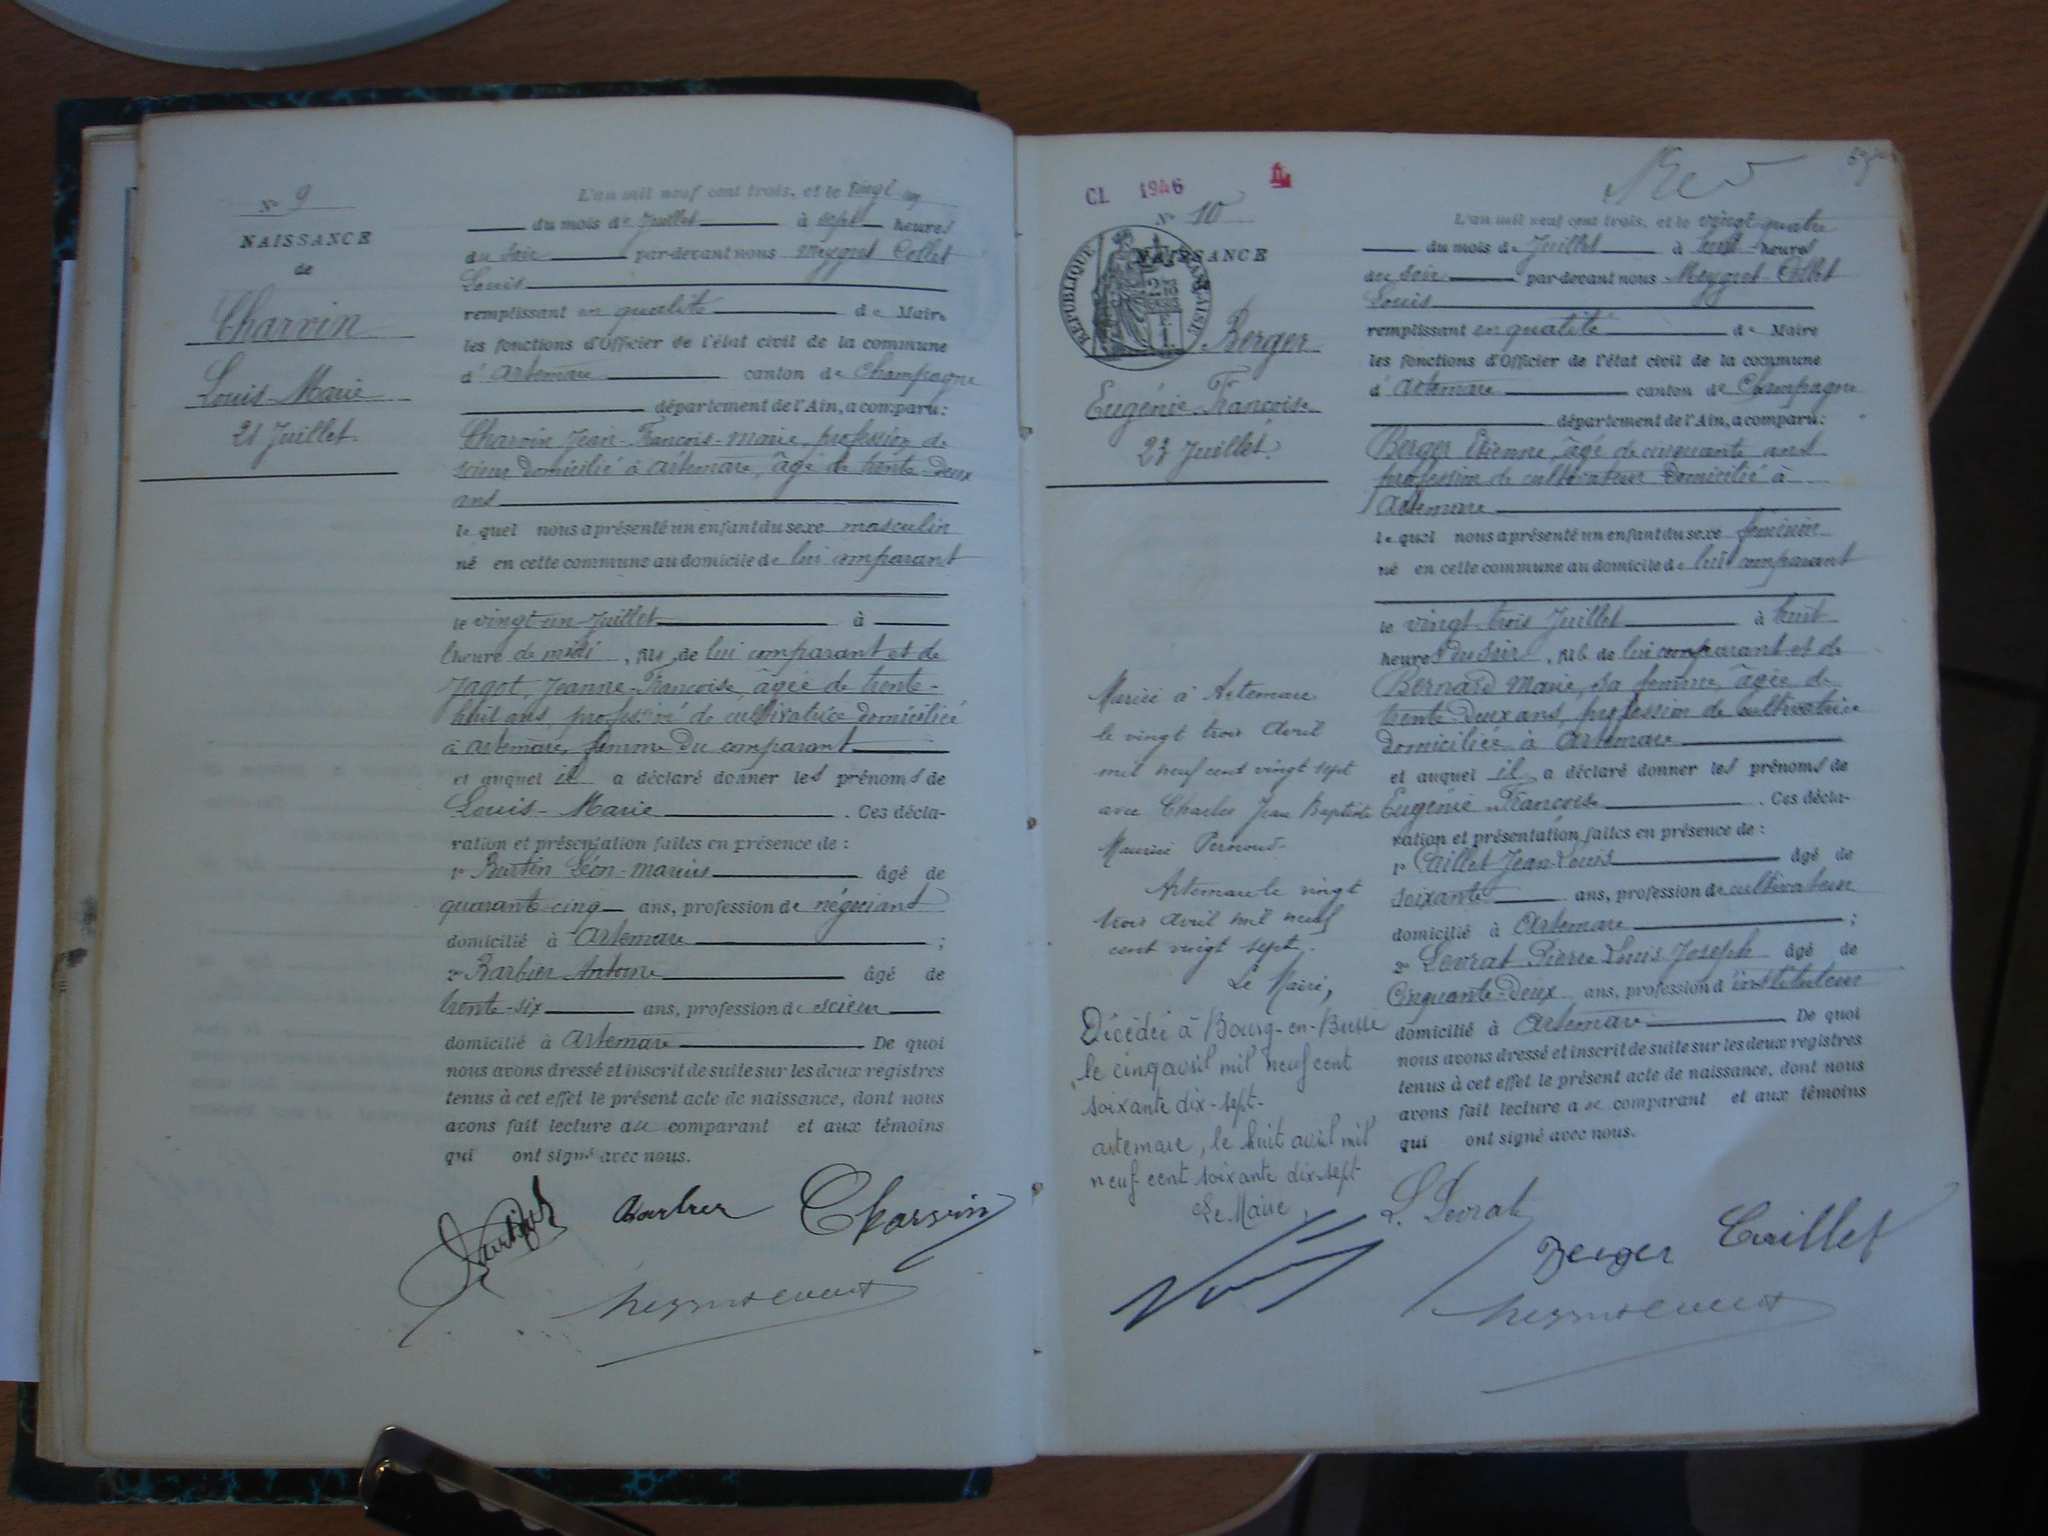 N° 9
NAISSANCE
de
Charvin
Louis-Marie
21 Juillet.
L'an mil neuf cent trois, et le vingt un
du mois de Juillet à sept heures
du soir par-devant nous Meygret Collet
Louis
remplissant en qualité de Maire
les fonctions d'Officier de l'état civil de la commune
d' Artemare canton de Champagne
département de l'Ain, a comparu:
Charvin Jean-François-Marie, profession de
scieur domicilié à Artemare, âgé de trente-deux
ans
le quel nous a présenté un enfant du sexe masculin
né en cette commune au domicile de lui comparant
le vingt-un Juillet à
l'heure de midi, fils de lui comparant et de
Jagot, Jeanne-Françoise, âgée de trente-
huit ans, profession de cultivatrice domiciliée
à Artemare, femme du comparant
et auquel il a déclaré donner les prénoms de
Louis-Marie. Ces décla-
ration et présentation faites en présence de :
1° Burtin Léon-Marius âgé de
quarante-cinq ans, profession de négociant
domicilié à Artemare ;
2° Barbier Antoine âgé de
trente-six ans, profession de scieur
domicilié à Artemare De quoi
nous avons dressé et inscrit de suite sur les deux registres
tenus à cet effet le présent acte de naissance, dont nous
avons fait lecture au comparant et aux témoins
qui ont signé avec nous.
Barbier Charvin
CL 1946
N° 10
NAISSANCE
RÉPUBLIQUE FRANÇAISE
Berger
Eugénie Françoise
23 Juillet.
Mariée à Artemare
le vingt trois Avril
mil neuf cent vingt sept
avec Charles Jean Baptiste
Maurice Pernoud.
Artemare le vingt
trois Avril mil neuf
cent vingt sept.
Le Maire,
Décédée à Bourg-en-Bresse
le cinq avril mil neuf cent
soixante dix-sept-
artemare, le huit avril mil
neuf cent soixante dix-sept
Le Maire,
L'an mil neuf cent trois, et le vingt-quatre
du mois de Juillet à huit heures
du soir par-devant nous Meygret-Collet
Louis
remplissant en qualité de Maire
les fonctions d'Officier de l'état civil de la commune
d' Artemare canton de Champagne
département de l'Ain, a comparu:
Berger Etienne, âgé de cinquante ans
profession de cultivateur domicilié à
Artemare
le quel nous a présenté un enfant du sexe féminin
né en cette commune au domicile de lui comparant
le vingt-trois Juillet à huit
heures du soir, fille de lui comparant et de
Bernard Marie, sa femme, âgée de
trente-deux ans, profession de cultivatrice
domiciliée à Artemare
et auquel il a déclaré donner les prénoms de
Eugénie-Françoise. Ces décla-
ration et présentation faites en présence de :
1° Caillet Jean-Louis âgé de
soixante ans, profession de cultivateur
domicilié à Artemare ;
2° Levrat Pierre Louis Joseph âgé de
Cinquante-deux ans, profession d'instituteur
domicilié à Artemare De quoi
nous avons dressé et inscrit de suite sur les deux registres
tenus à cet effet le présent acte de naissance, dont nous
avons fait lecture au comparant et aux témoins
qui ont signé avec nous.
L. Levrat
Berger Caillet